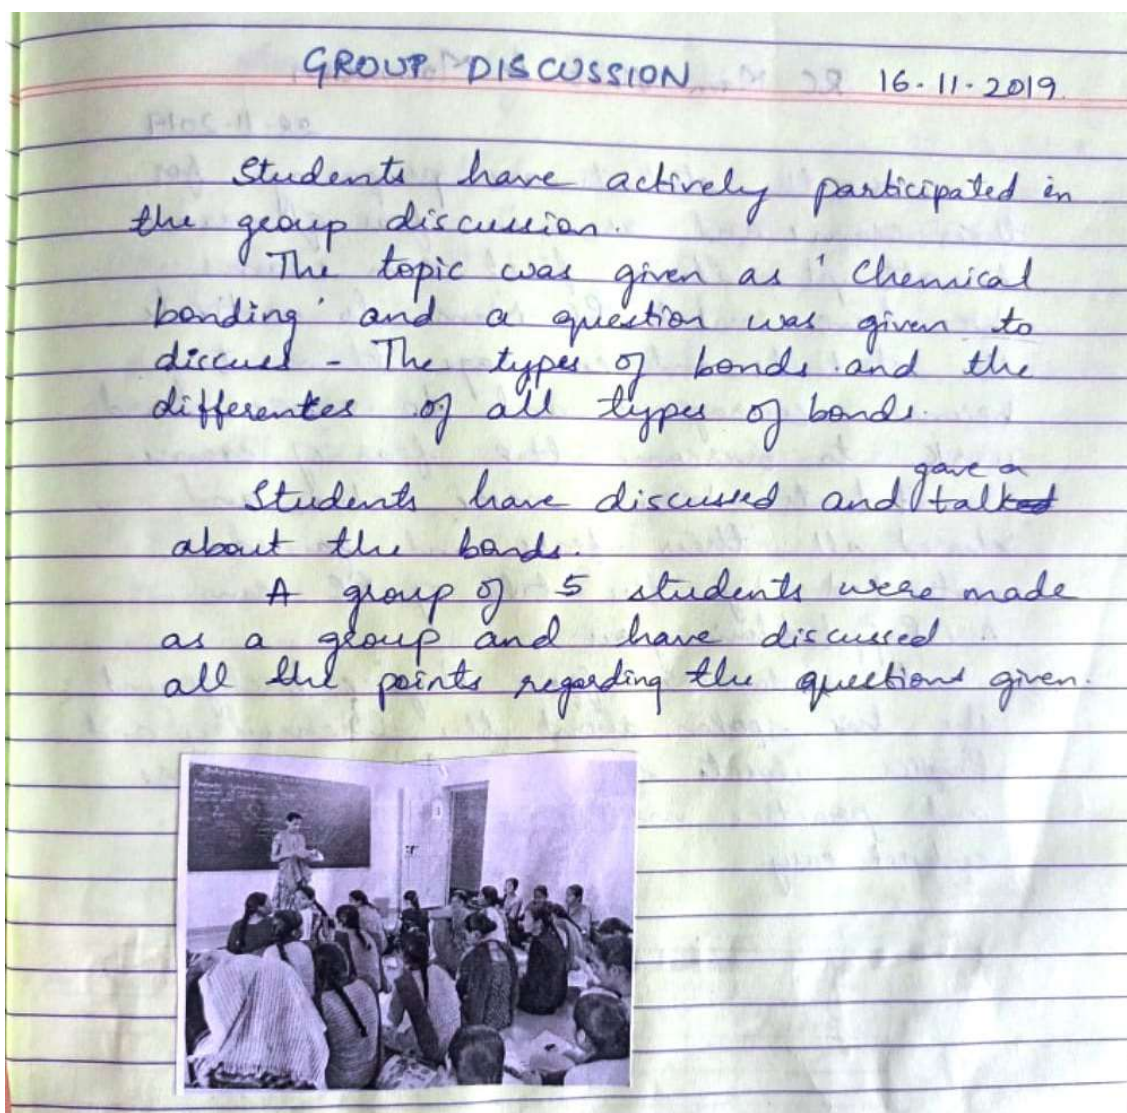 GROUP DISCUSSION 16-11-2019
Students have actively participated in
the group discussion.
The topic was given as 'Chemical
bonding' and a question was given to
discuss - The types of bonds and the
differentes of all types of bonds.
Students have discussed and gave a talk
about the bonds.
A group of 5 students were made
as a group and have discussed
all the points regarding the questions given.